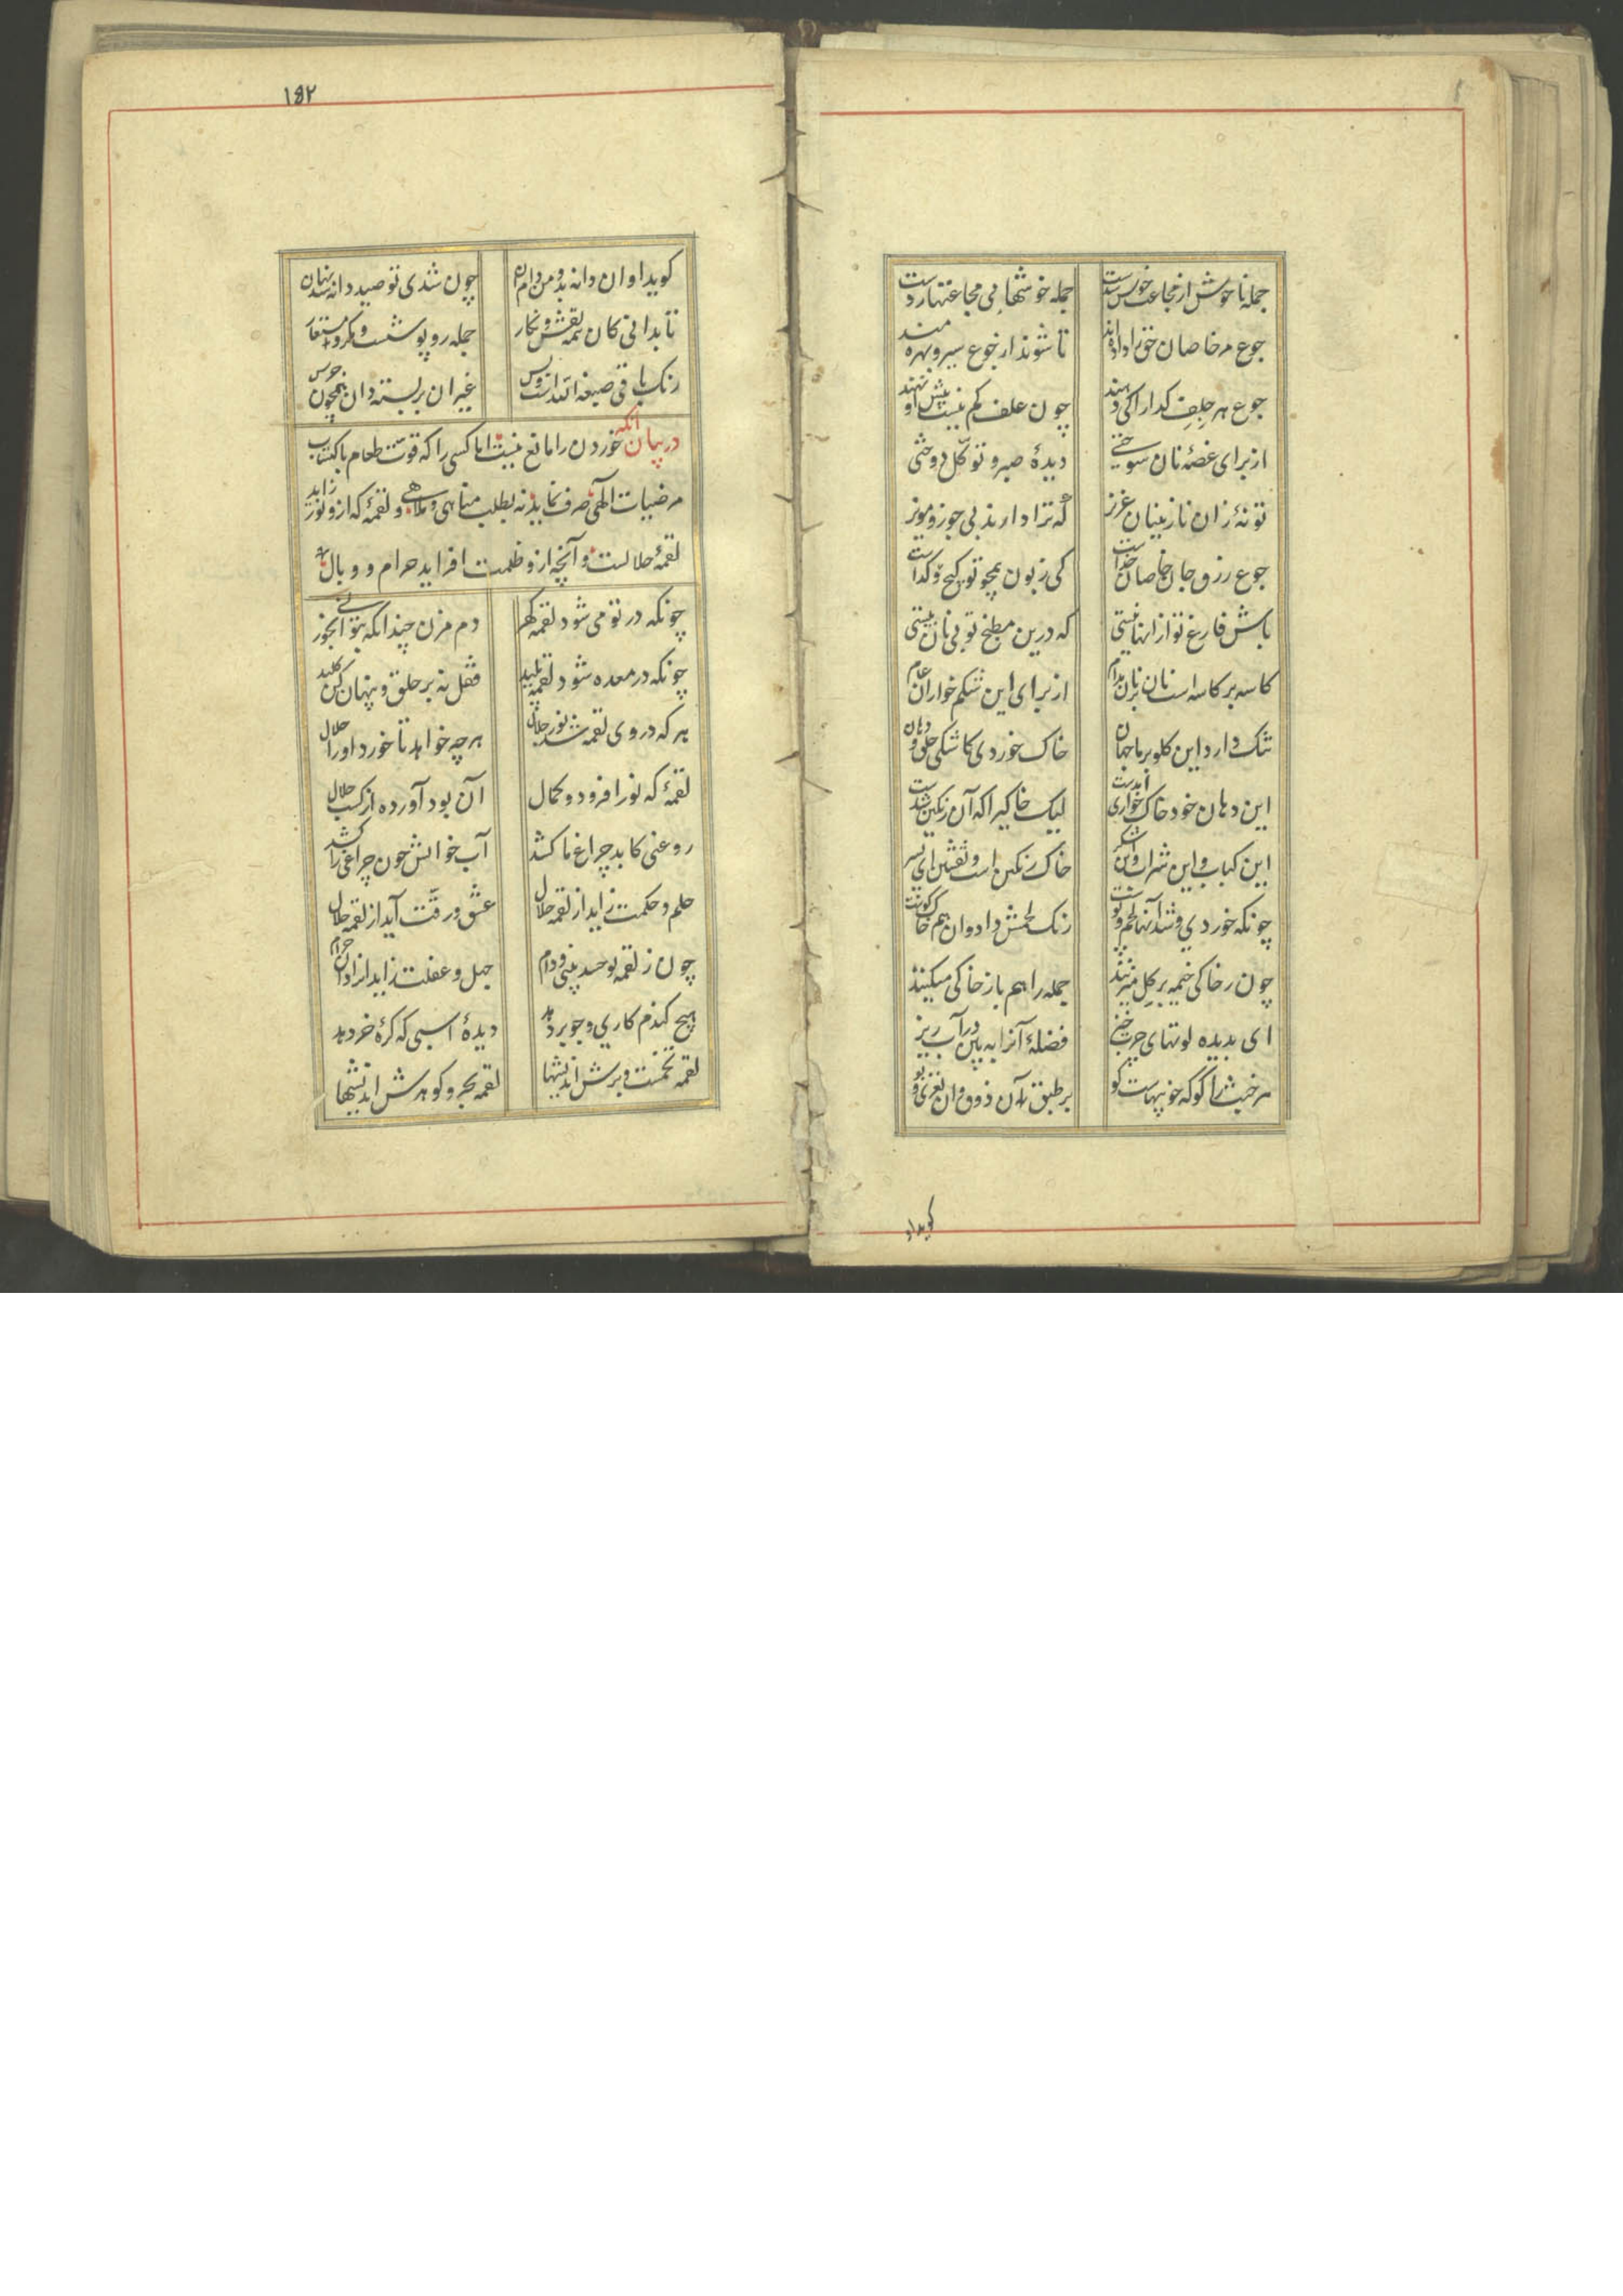 جمله ناخوش از مجاعت خوش شدست جمله خوشها بی مجاعتهاردست
جوع مر خاصان حق را داده اند تا شوند از جوع سیر و بهره مند
جوع هر جلف کدا را کی دهند چون علف کم نیست پیش او نهند
از برای غصهٔ نان سوختی دیدهٔ صبر و توکل دوختی
تو نهٔ زان نازنینان عزیز که ترا دارند بی جوز و مویز
جوع رزق جان خاصان خداست کی زبون همچو تو کیج کداست
باش فارغ تو از انها نیستی که درین مطبخ تو بی نان بیستی
کاسه بر کاسه است نان بر نان مدام از برای این شکم خواران عام
تنک دارد این کلو بر ما جهان خاک خوردی کاشکی حلق و دهان
این دهان خود خاک خواری آمدست لیک خاکی را که آن رنکین شدست
این کباب و این شراب و این شکر خاک رنکین است و نقشین ای پسر
چونکه خوردی و شد آنها لحم و پوست رنک لحمش داد و ان هم خاک کوست
چون ز خاکی خیمه بر کل میزنند جمله را هم باز خاکی میکنند
ای بدیده لوتهای چرب خیز فضلهٔ آنرا به بین در آب ریز
مر خبث را کو که خوبیهات کو بر طبق آن ذوق و ان نغزی و بو
کوید او
۱۵۲
کوید او ان دانه بد و من دام ان چون شدی تو صید دانه شد نهان
تا بدانی کان همه نقش و نکار جمله روپوشست و مکر و مستعار
رنک باقی صبغة الله است و بس غیر ان بر بسته دان همچون جرس
در بیان انکه خوردن را مانع نیست اما کسی را که قوت طعام باکتساب
مرضیات الهی صرف نماید نه بطلب مناهی و ملاهی و لقمهٔ که ازو نور زاید
لقمهٔ حلالست و آنچه ازو ظلمت افزاید حرام و وبال
چونکه در تو می شود لقمه کهر دم مزن چندانکه بتوانی بخور
چونکه در معده شود لقمه پلید قفل نه بر حلق و پنهان کن کلید
هر که در وی لقمه شد نور جلال هر چه خواهد تا خورد او را حلال
لقمهٔ که نور افزود و کمال آن بود آورده از کسب حلال
روغنی کاید چراغ ما کشد آب خوانش چون چراغی را کشد
حلم و حکمت زاید از لقمه حلال عشق و رقت آید از لقمه حلال
چون ز لقمه تو حسد بینی و دام جهل و غفلت زاید انرا دان حرام
هیچ کندم کاری و جو بر دهد دیدهٔ اسبی که کرهٔ خر دهد
لقمه تخمست و برش اندیشها لقمه بحر و کوهرش اندیشها